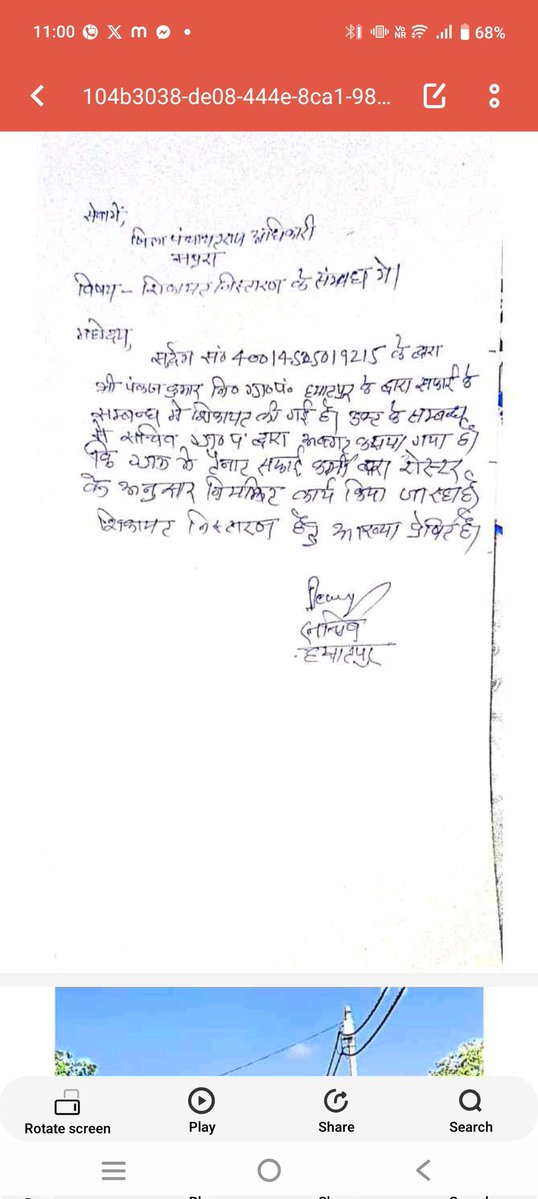 11:00
VoNR 68%
104b3038-de08-444e-8ca1-98...
सेवामें,
जिला पंचायतराज अधिकारी
विषय - शिकायत निस्तारण के संम्बन्ध मे।
महोदय,
सदर्भ सं० 40014525019215 के द्वारा
श्री पंकज कुमार नि० ग्रा०पं० हयातपुर के द्वारा सफाई के
सम्बन्ध मे शिकायत की गई है। उक्त के सम्बन्ध
मे सचिव ग्रा० पं० द्वारा अवगत कराया गया है।
कि मे तैनात सफाई कर्मी द्वारा रोस्टर
के अनुसार कार्य किया जा रहा है
शिकायत निस्तारण हेतु आख्या प्रेषित है।
सचिव
हयातपुर
Rotate screen
Play
Share
Search